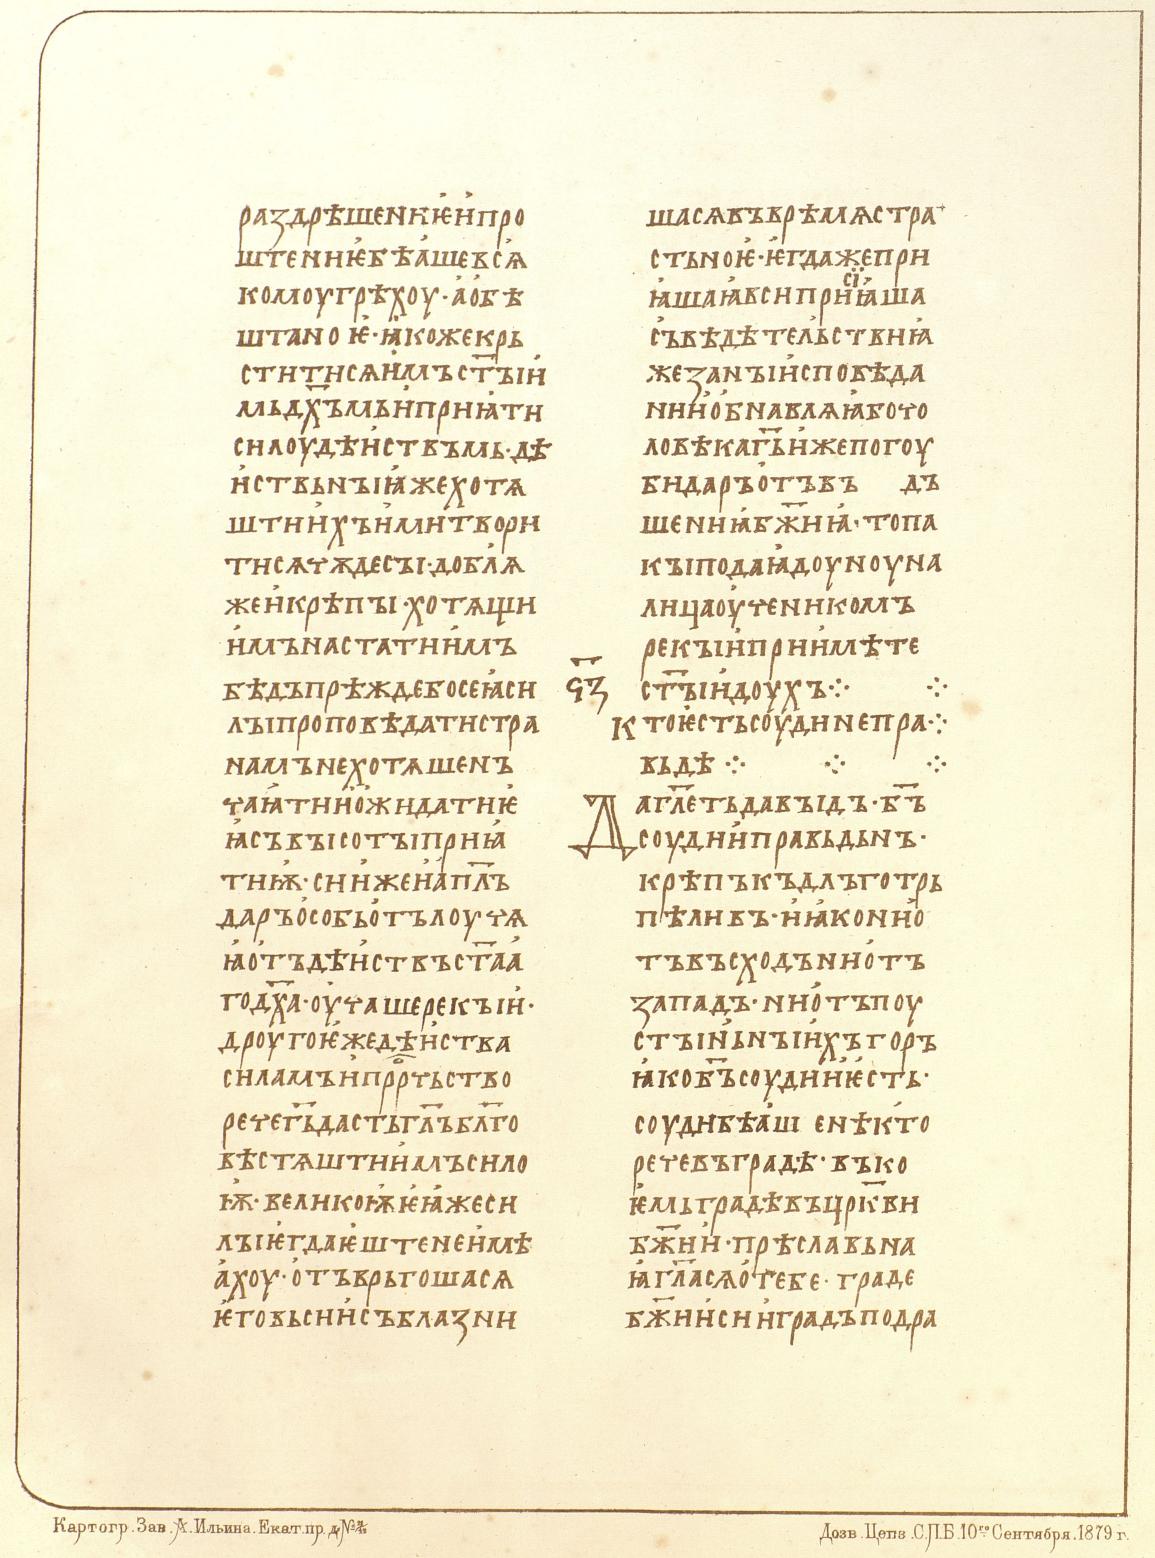 раздрѣшениѥ·и҆про
штениѥбѣа҆шевсѧ҆
комоугрѣхоу·а҆о҆бѣ
штано ѥ·ꙗкожекрь
ститисѧи҆мъст҃ꙑи҆
мьдх҃ъмьи҆приꙗти
силоудѣи҆ствъмь·дѣ
и҆ствьнꙑꙗжехотѧ
штии҆хъи҆митвори
тисѧчѫдесꙑ·доблѧ
жеи҆крѣпꙑ·хотѧщи
и҆мънастатии҆мъ
бѣдъпрѣждебосеꙗси
лꙑпроповѣдатистра
намънехотѧшенъ
чаꙗтини҆о҆жидатиѥ
ꙗсъвꙑсотꙑприꙗ
тиѭ·сии҆жена҆пл҃ъ
даръо҆собьо҆тълоучѧ
ꙗо҆тъдѣи҆ствъст҃аа҆
годх҃а·оу҆чашерекꙑи҆·
дроугоѥжедѣи҆ства
силамъи҆пррⷪ҇чьство
речегь҃дастьгл҃ъбл҃го
вѣстѧштии҆мъсило
ѭ·великоѭѥꙗжеси
лꙑѥгдаѥштенеи҆мѣ
а҆хоу·о҆тъврьгошасѧ
ѥговьсии҆съблазни
шасѧвъврѣмѧстра
стьноѥ·ѥгдажепри
ꙗшаꙗвсиприсїꙗша
съвѣдѣтельствиꙗ
жезанꙑи҆сповѣда
нии҆о҆бнавлѧꙗбочо
ловѣкагь҃и҆жепогоу
бидаръо҆тъвъ дъ
шениꙗбж҃иꙗ·топа
кꙑподаꙗдоуноуна
лицаоу҆ченикомъ
рекꙑи҆прии҆мѣте
ѕ҃з ст҃ꙑи҆доухъ⁘ ⁘
Ктоѥстьсоудинепра⁘
вьдѣ ⁘ ⁘ ⁘
Дагл҃етьдавꙑдъ·б҃ъ
соудии҆правьдьнъ·
крѣпъкъдлъготрь
пѣливъ·и҆ꙗконио҆
тъвъсходънио҆тъ
западъ·нио҆тъпоу
стꙑи҆ьнꙑи҆хъгоръ
ꙗкоб҃ъсоудии҆ѥсть·
соудибѣа҆ш енѣкто
речевъградѣ·въко
ѥмьградѣвъцр҃кви
бж҃ии҆·прѣславьна
ꙗгл҃асѧо҆тебе·граде
бж҃ии҆сии҆градъподра
Картогр. Зав. А. Ильина. Екат. пр. д. №
Дозв. Ценз. С.П.Б. 10го Сентября. 1879 г.